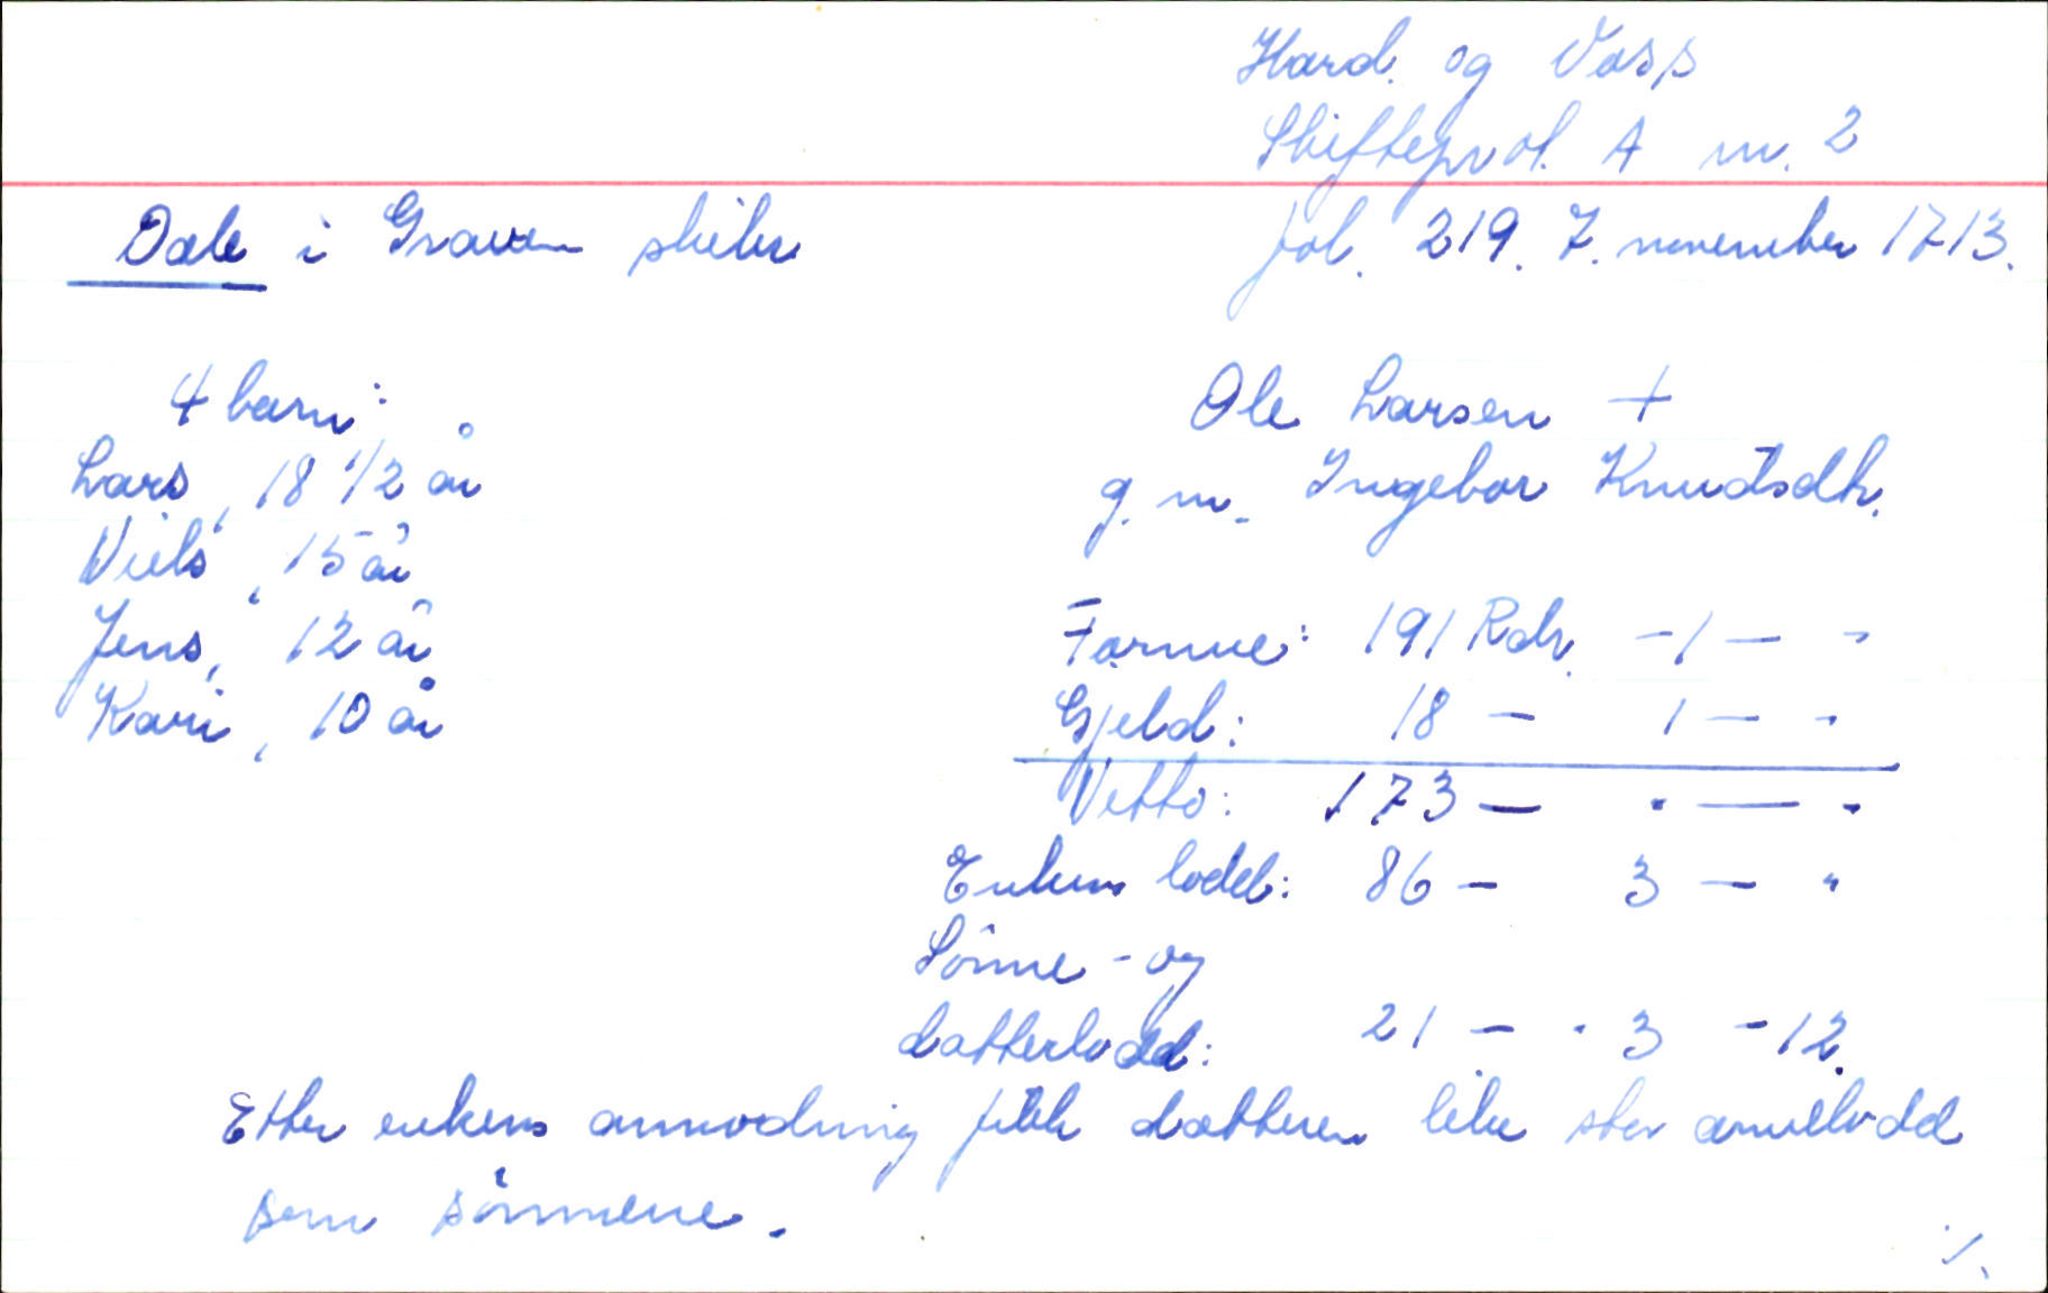 Hard. og Voss
Skifteprot. A nr. 2
Dale i Graven skibr. fol. 219. 7. november 1713.
4 barn:
Lars, 18 1/2 år
Niels, 15 år
Jens, 12 år
Kari, 10 år
Ole Larsen +
g. m. Ingebor Knudsdtr.
Formue: 191 Rdr. - 1 - -
Gjeld: 18 - 1 - -
Netto: 173 - " - "
Enkens lodd: 86 - 3 - "
Sönne- og
datterlodd: 21 - 3 - 12.
Etter enkens anmodning fikk datteren like stor arvelodd
som sönnene.
./.